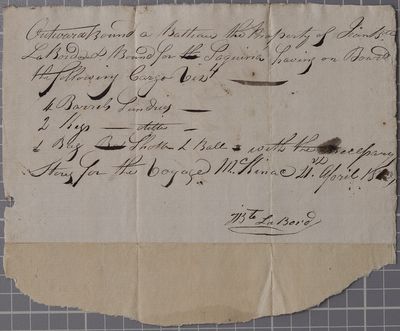 Outward Bound a Batteau the Property of Jean Bte
LaBord & Bound for the Saguina having on Board
the following Cargo Vizt
4 Barrels Sundries
2 Kegs ditto
1 Bag Shott & Ball with the necessary
Stores for the Voyage McKinac 4th April
Bte LaBord